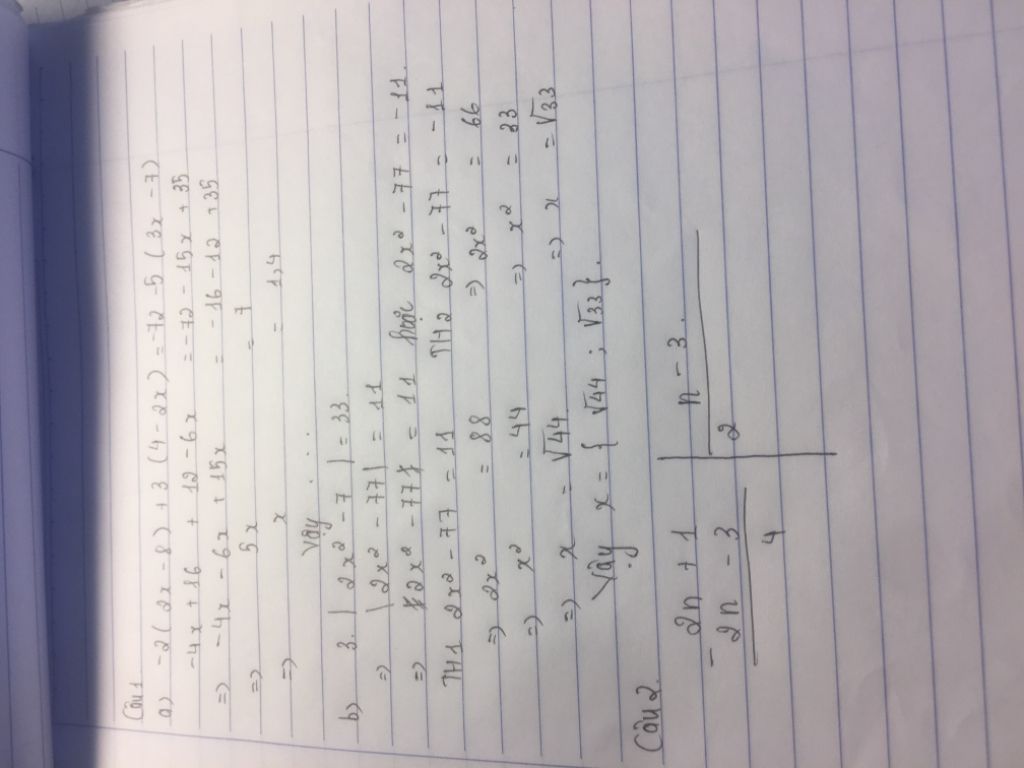 Câu 1
a) -2(2x - 8) + 3(4 - 2x) = -72 - 5(3x - 7)
-4x + 16 + 12 - 6x = -72 - 15x + 35
=> -4x - 6x + 15x = -16 - 12 + 35
=> 5x = 7
=> x = 1,4
Vậy ...
b) 3. | 2x² - 7 | = 33
=> | 2x² - 77 | = 11
=> 2x² - 77 = 11 hoặc 2x² - 77 = -11.
TH1 2x² - 77 = 11 TH2 2x² - 77 = -11
=> 2x² = 88 => 2x² = 66
=> x² = 44 => x² = 33
=> x = √44 => x = √33
Vậy x = { √44 ; √33 }.
Câu 2.
2n + 1 | n - 3.
- 2n - 3 | 2
4